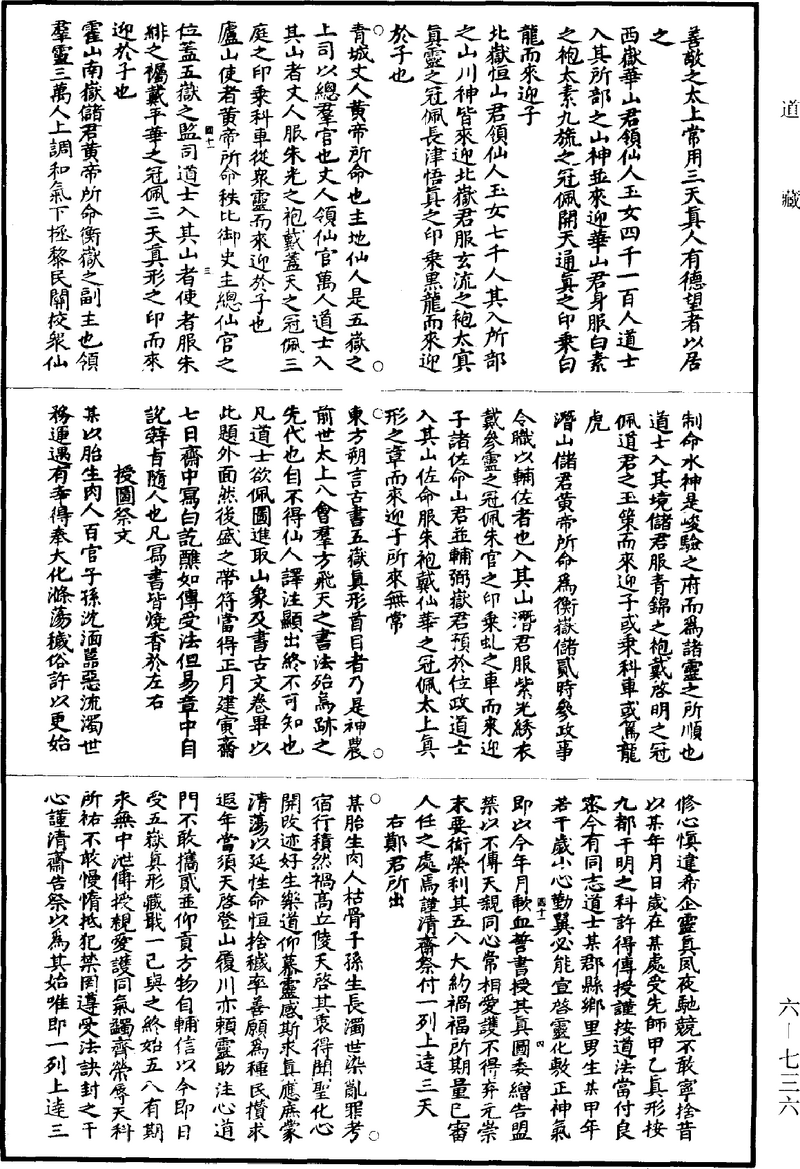 道藏
善敬之太上常用三天真人有德望者以居
之
西嶽華山君領仙人玉女四千一百人道士
入其所部之山神並來迎華山君身服白素
之袍太素九旒之冠佩開天通真之印乘白
龍而來迎子
北嶽恒山君領仙人玉女七千人其入所部
之山川神皆來迎北嶽君服玄流之袍太冥
真靈之冠佩長津悟真之印乘黑龍而來迎
於子也
青城丈人黃帝所命也主地仙人是五嶽之
上司以總羣官也丈人領仙官萬人道士入
其山者丈人服朱光之袍戴蓋天之冠佩三
庭之印乘科車從衆靈而來迎於子也
廬山使者黃帝所命秩比御史主總仙官之
四十一
三
位蓋五嶽之監司道士入其山者使者服朱
緋之襡戴平華之冠佩三天真形之印而來
迎於子也
霍山南嶽儲君黃帝所命衡嶽之副主也領
羣靈三萬人上調和氣下拯黎民閱校衆仙
制命水神是峻驗之府而爲諸靈之所順也
道士入其境儲君服青錦之袍戴啓明之冠
佩道君之玉策而來迎子或乘科車或駕龍
虎
潛山儲君黃帝所命爲衡嶽儲貳時參政事
令職以輔佐者也入其山潛君服紫光綉衣
戴參靈之冠佩朱官之印乘虬之車而來迎
子諸佐命山君並輔弼嶽君預於位政道士
入其山佐命服朱袍戴仙華之冠佩太上真
形之章而來迎子所來無常
東方朔言古書五嶽真形首目者乃是神農
前世太上八會羣方飛天之書法殆鳥跡之
先代也自不得仙人譯注顯出終不可知也
凡道士欲佩圖進取山象及書古文卷畢以
此題外面然後盛之帶符當得正月建寅齋
七日齋中寫白訖醮如傳受法但易章中自
說辭旨隨人也凡寫書皆燒香於左右
授圖祭文
某以胎生肉人百官子孫沈湎囂惡流濁世
務運遇有幸得奉大化滌蕩穢俗許以更始
修心愼違希企靈真夙夜馳競不敢寧捨昔
以某年月日歲在某處受先師甲乙真形按
九都干明之科許得傳授謹按道法當付良
密今有同志道士某郡縣鄉里男生某甲年
若干歲小心勤翼必能宣啓靈化敷正神氣
四十一
四
即以今年月歃血誓書授其真圖委繒告盟
禁以不傳天親同心常相愛護不得弃元崇
末要衒榮利其五八大約禍福所期量已審
人任之處焉謹清齋祭付一列上達三天
右鄭君所出
某胎生肉人枯骨子孫生長濁世染亂罪考
宿行積然禍高丘陵天啓其衷得聞聖化心
開改迹好生樂道仰慕靈感斯求真應庶蒙
清蕩以延性命恒捨穢率善願爲種民攢求
遐年當須天啓登山履川亦賴靈助注心道
門不敢攜貳並仰貢方物自輔信以今即日
受五嶽真形藏戢一己與之終始五八有期
永無中泄傳授親愛護同氣蠲齊榮辱天科
所祐不敢慢惰抵犯禁罔遵受法訣封之干
心謹清齋告祭以爲其始唯即一列上達三
六—七三六